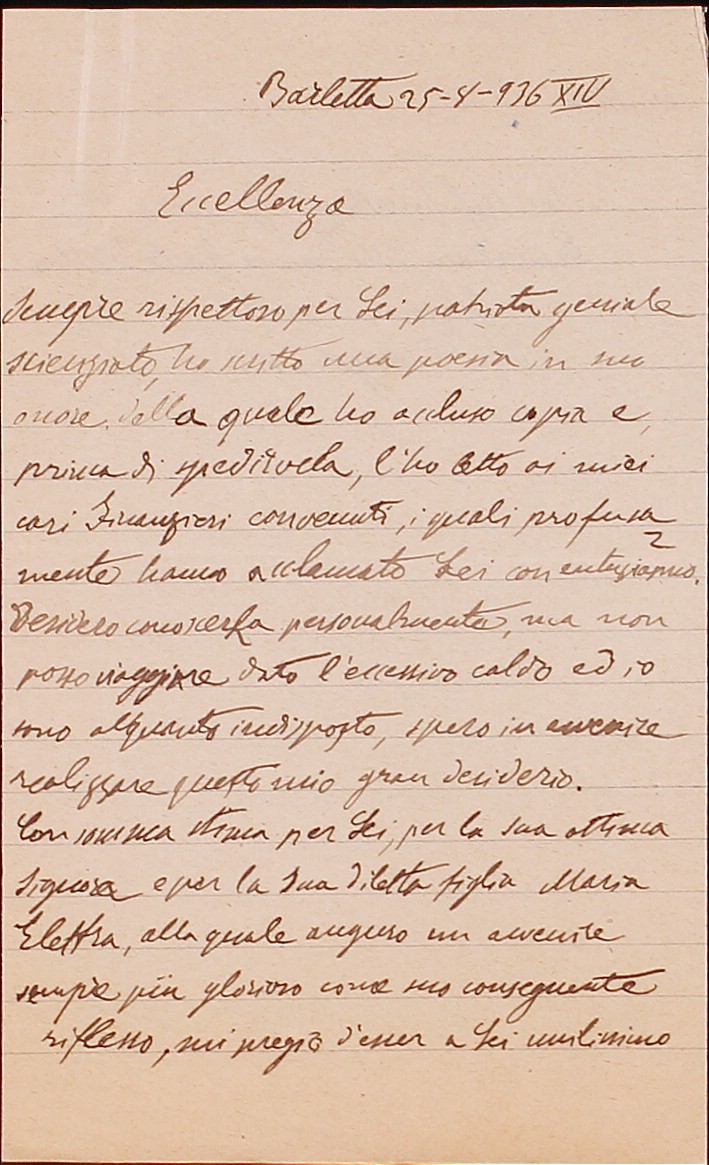 Barletta 25-8-936 XIV
Eccellenza
Sempre rispettoso per Lei, patriota geniale
scienziato, ho scritto una poesia in suo
onore, della quale ho accluso copia e,
prima di spedirvela, l'ho letto ai miei
cari Finanzieri convenuti, i quali profusa
mente hanno acclamato Lei con entusiasmo.
Desidero conoscerLa personalmente, ma non
posso viaggiare dato l'eccessivo caldo ed io
sono alquanto indisposto, spero in avvenire
realizzare questo mio gran desiderio.
Con somma stima per Lei, per la sua ottima
Signora e per la Sua diletta figlia Maria
Elettra, alla quale auguro un avvenire
sempre più glorioso come suo conseguente
riflesso, mi pregio d'esser a Lei umilissimo